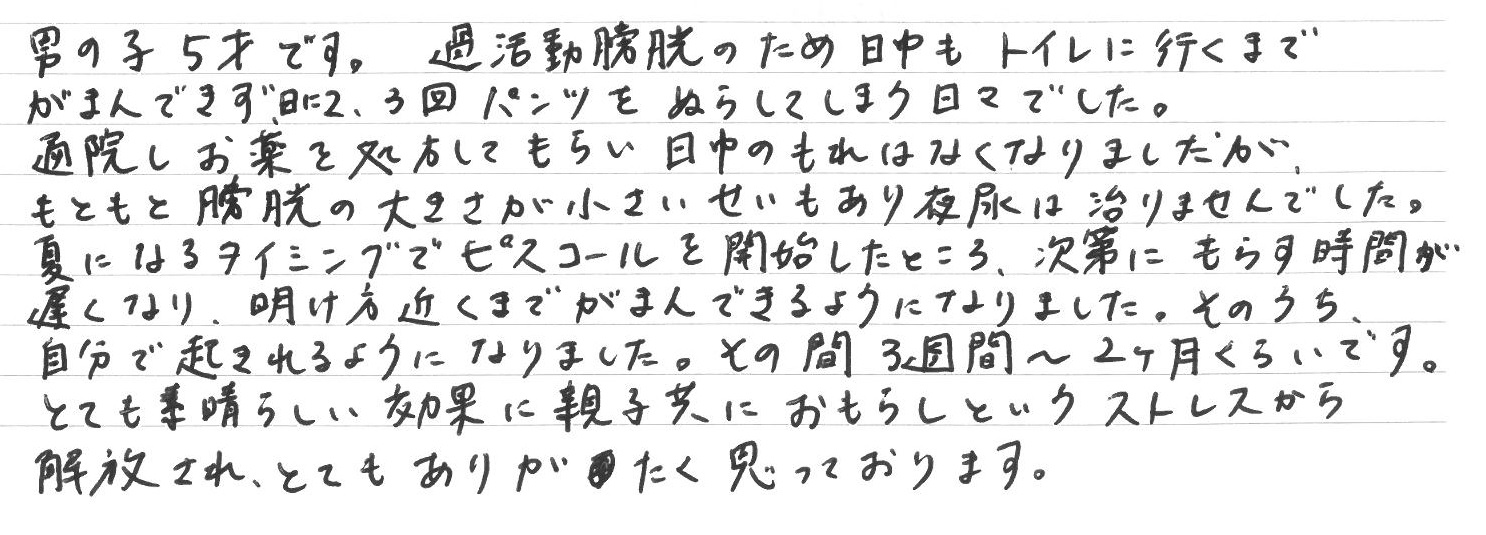 男の子5才です。 過活動膀胱のため日中もトイレに行くまで
がまんできず、日に2、3回パンツをぬらしてしまう日々でした。
通院しお薬を処方してもらい日中のもれはなくなりましたが、
もともと膀胱の大きさが小さいせいもあり夜尿は治りませんでした。
夏になるタイミングでピスコールを開始したところ、次第にもらす時間が
遅くなり、明け方近くまでがまんできるようになりました。そのうち、
自分で起きれるようになりました。その間3週間～2ヶ月くらいです。
とても素晴らしい効果に親子共におもらしというストレスから
解放され、とてもありがたく思っております。